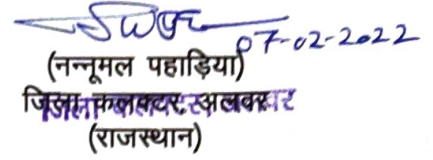 07-02-2022
(नन्नूमल पहाड़िया)
जिला कलक्टर, अलवर
(राजस्थान)